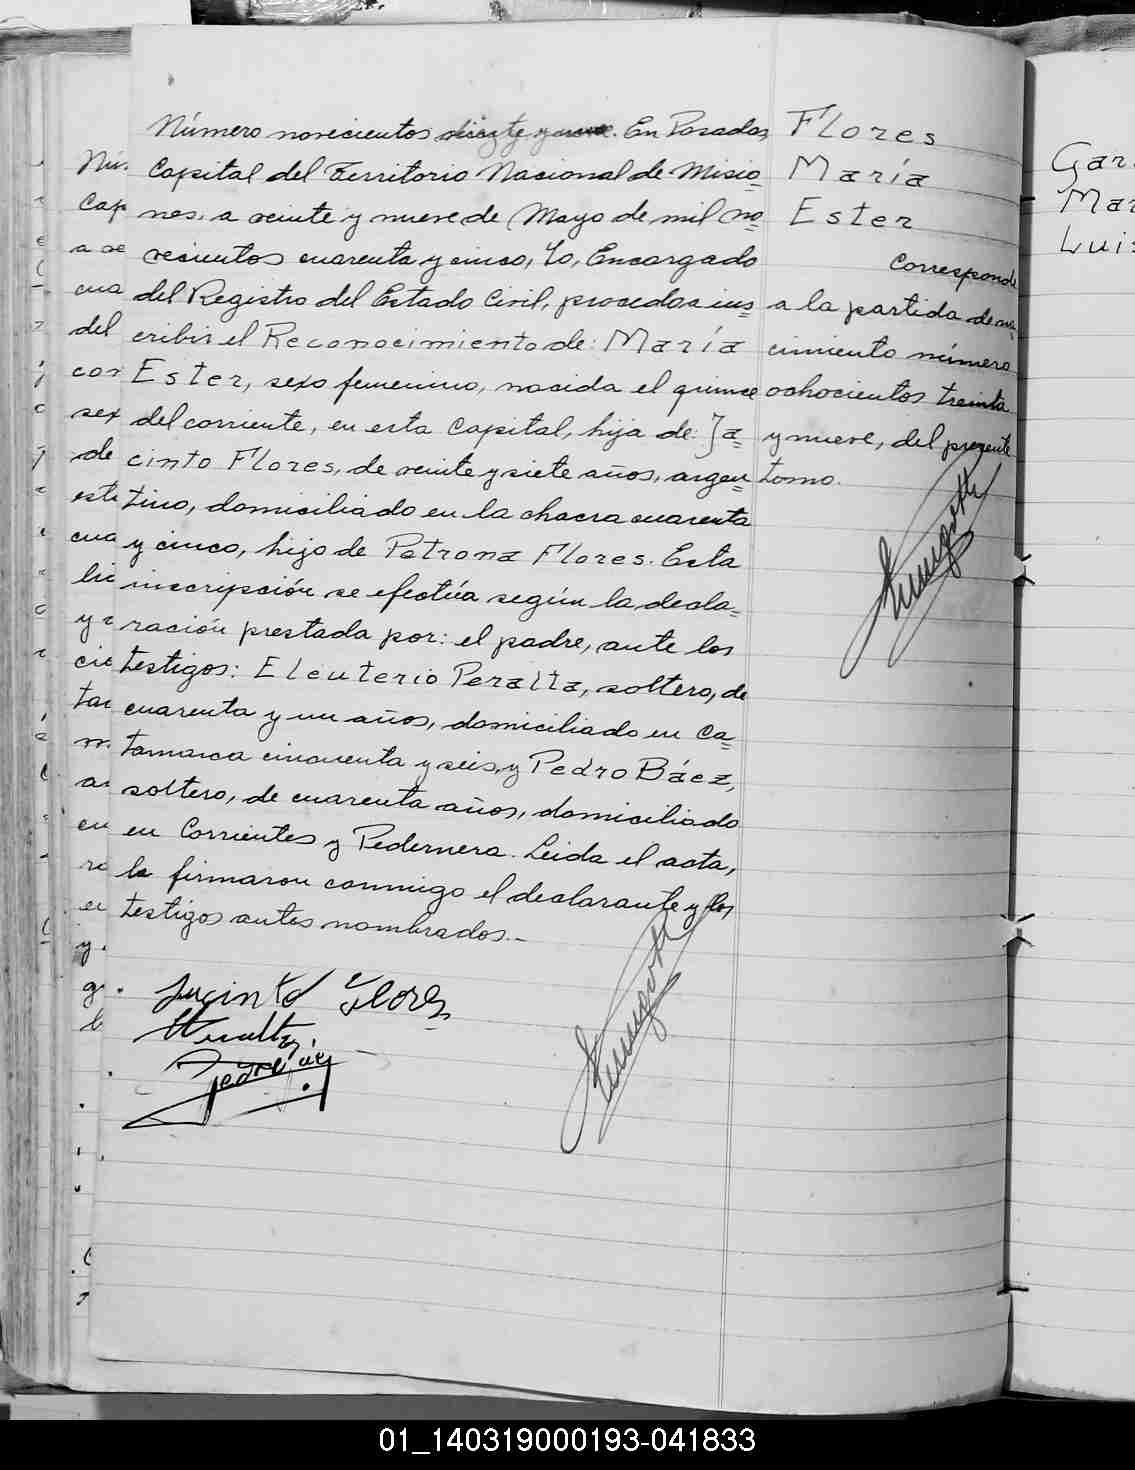 Número novecientos En Posadas,
Capital del Territorio Nacional de Misio=
nes, a veinte y nueve de Mayo de mil no=
vecientos cuarenta y cinco, Yo, Encargado
del Registro del Estado Civil, procedo a ins=
cribir el Reconocimiento de: María
Ester, sexo femenino, nacida el quince
del corriente, en esta Capital, hija de: Ja=
cinto Flores, de veinte y siete años, argen=
tino, domiciliado en la chacra cuarenta
y cinco, hijo de Petrona Flores. Esta
inscripción se efectúa según la decla=
ración prestada por: el padre, ante los
testigos: Eleuterio Peralta, soltero, de
cuarenta y un años, domiciliado en Ca=
tamarca cincuenta y seis, y Pedro Báez,
soltero, de cuarenta años, domiciliado
en Corrientes y Pedernera. Leida el acta,
la firmaron conmigo el declarante y los
testigos antes nombrados.-
Jacinto Flores
Flores
María
Ester
Corresponde
a la partida de na=
cimiento número
ochocientos treinta
y nueve, del presente
tomo.
Nú
Cap
a ve
cua
del
cor
sex
de
Gar
Mar
Luis
01_140319000193-041833